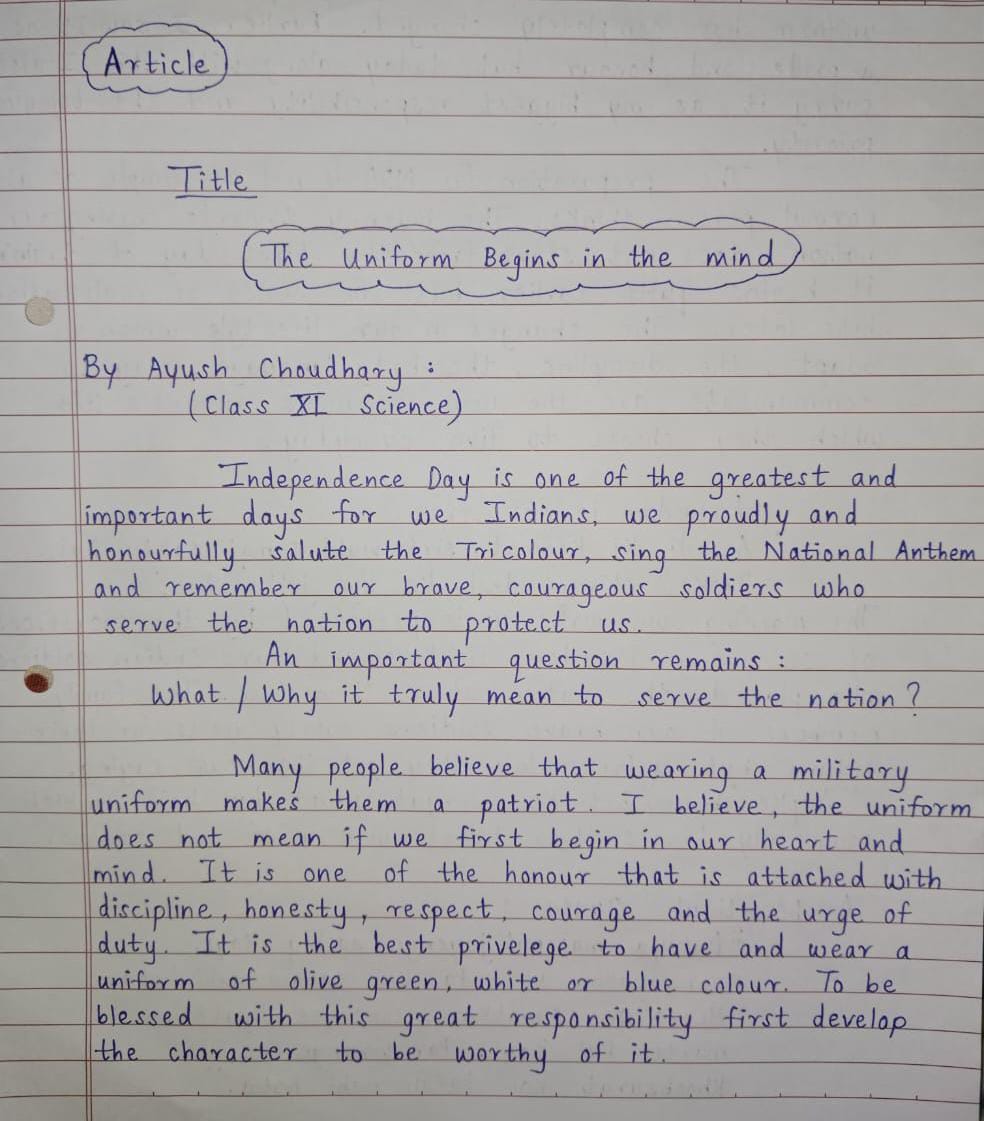 Article
Title
The Uniform Begins in the mind
By Ayush Choudhary :
(Class XI Science)
Independence Day is one of the greatest and
important days for we Indians, we proudly and
honourfully salute the Tricolour, sing the National Anthem
and remember our brave, courageous soldiers who
serve the nation to protect us.
An important question remains :
What / Why it truly mean to serve the nation ?
Many people believe that wearing a military
uniform makes them a patriot. I believe, the uniform
does not mean if we first begin in our heart and
mind. It is one of the honour that is attached with
discipline, honesty, respect, courage and the urge of
duty. It is the best privelege to have and wear a
uniform of olive green, white or blue colour. To be
blessed with this great responsibility first develop
the character to be worthy of it.